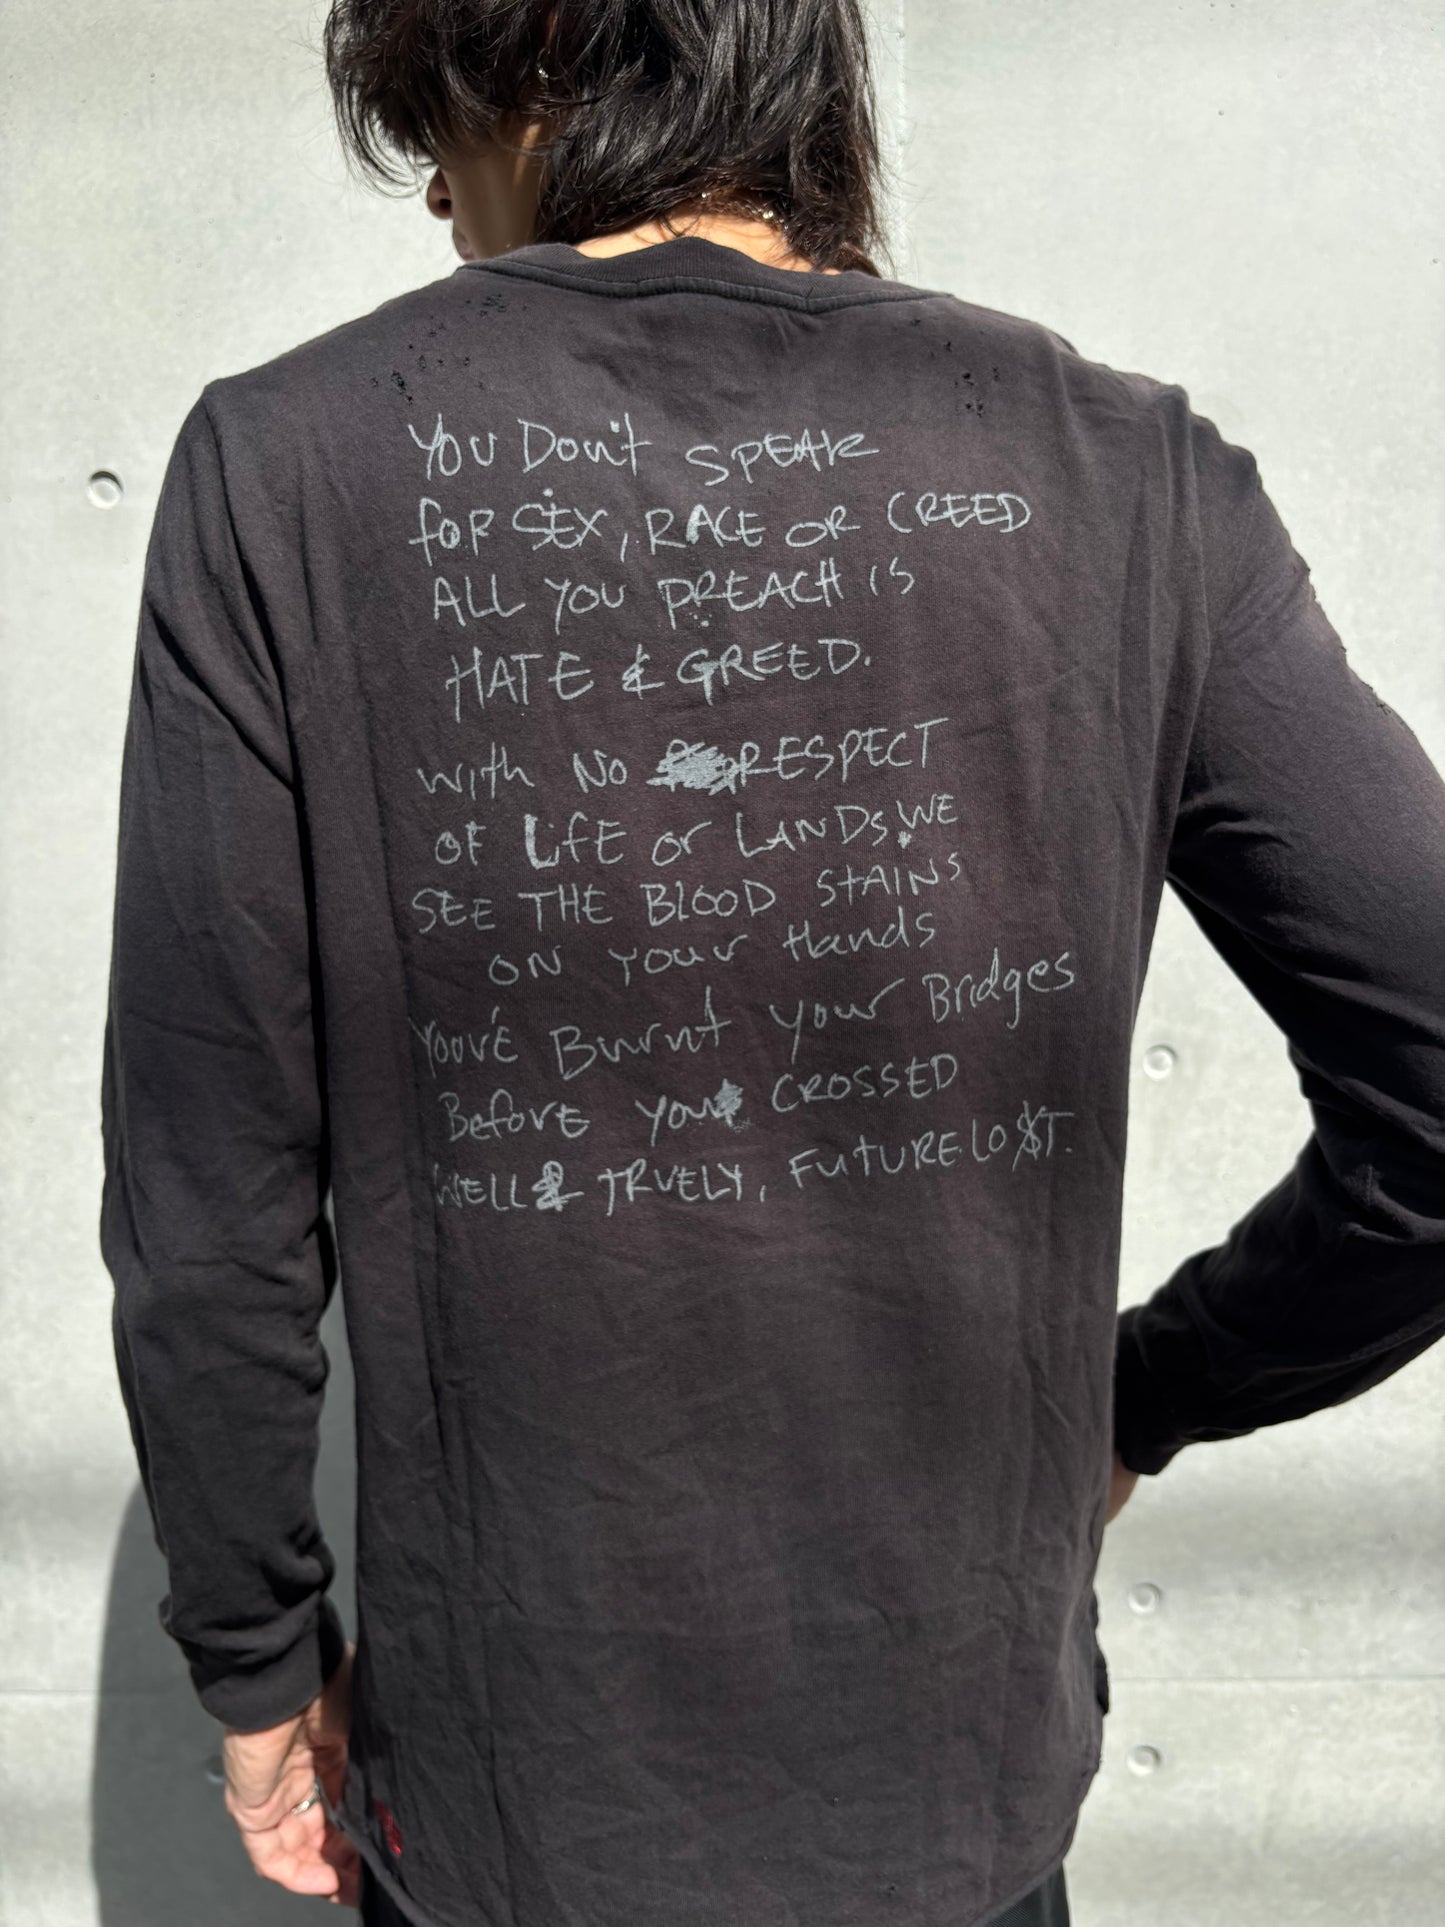 You Don't SPEAK
for SEX, RACE OR CREED
ALL YOU PREACH IS
HATE & GREED.
With NO RESPECT
OF LifE or LANDS, WE
SEE THE BlOOD StAINS
ON Your Hands
Youv'E Burnt your Bridges
BeforE you CROSSED
WELL & TRUELY, FUtURE LO$T.